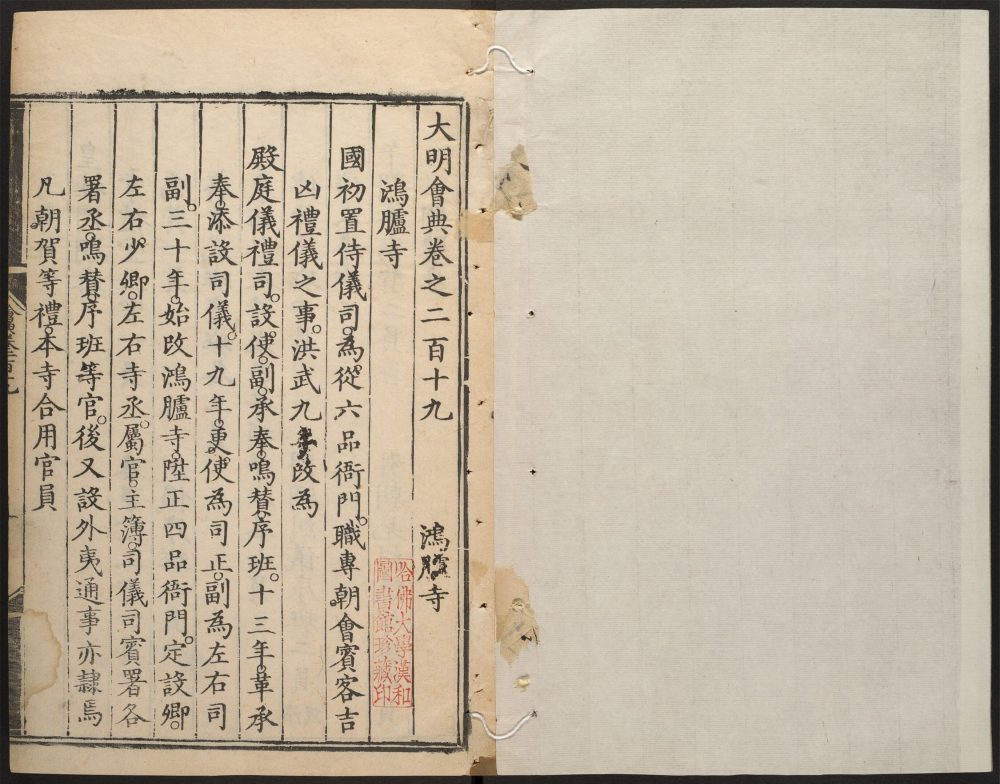 大明會典卷之二百十九　鴻臚寺
鴻臚寺
哈佛大學漢和
圖書館珍藏印
國初置侍儀司。為從六品衙門。職專朝會賓客吉
凶禮儀之事。洪武九年改為
殿庭儀禮司。設使。副。承奉。鳴贊。序班。十三年。革承
奉。添設司儀。十九年。更使為司正。副為左右司
副。三十年。始改鴻臚寺。陞正四品衙門。定設卿。
左右少卿。左右寺丞。屬官。主簿。司儀司賓署各
署丞。鳴贊。序班等官。後又設外夷通事亦隸焉
凡朝賀等禮。本寺合用官員